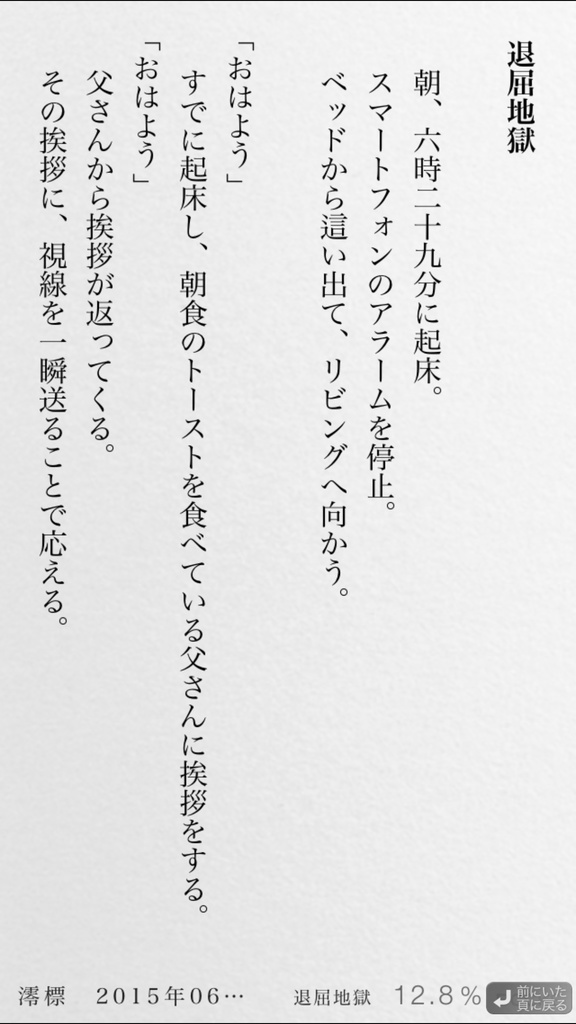 退屈地獄
朝、六時二十九分に起床。
スマートフォンのアラームを停止。
ベッドから這い出て、リビングへ向かう。
「おはよう」
すでに起床し、朝食のトーストを食べている父さんに挨拶をする。
「おはよう」
父さんから挨拶が返ってくる。
その挨拶に、視線を一瞬送ることで応える。
澪標 2015年06… 退屈地獄 12.8%
前にいた
頁に戻る